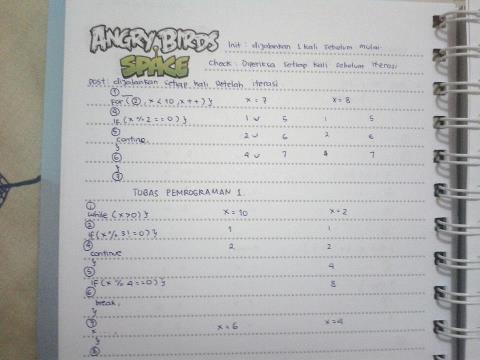 ANGRY BIRDS
SPACE
Init : dijalankan 1 kali sebelum mulai
Check : Diperiksa setiap kali sebelum iterasi
post : dijalankan setiap kali setelah iterasi
①
for (②, x < 10, x++) { x = 7 x = 8
④
if (x % 2 == 0) { 1 ✓ 5 1 5
⑤
continue 2 ✓ 6 2 6
}
⑥ 4 ✓ 7 4 7
}
TUGAS PEMROGRAMAN 1.
①
while (x>0) { x = 10 x = 2
②
if (x % 3 != 0) { 1 1
④ 2 2
continue
} 4
⑤
if (x % 4 == 0) { 8
⑥
break,
}
⑦ x = 6 x = 4
}
⑧